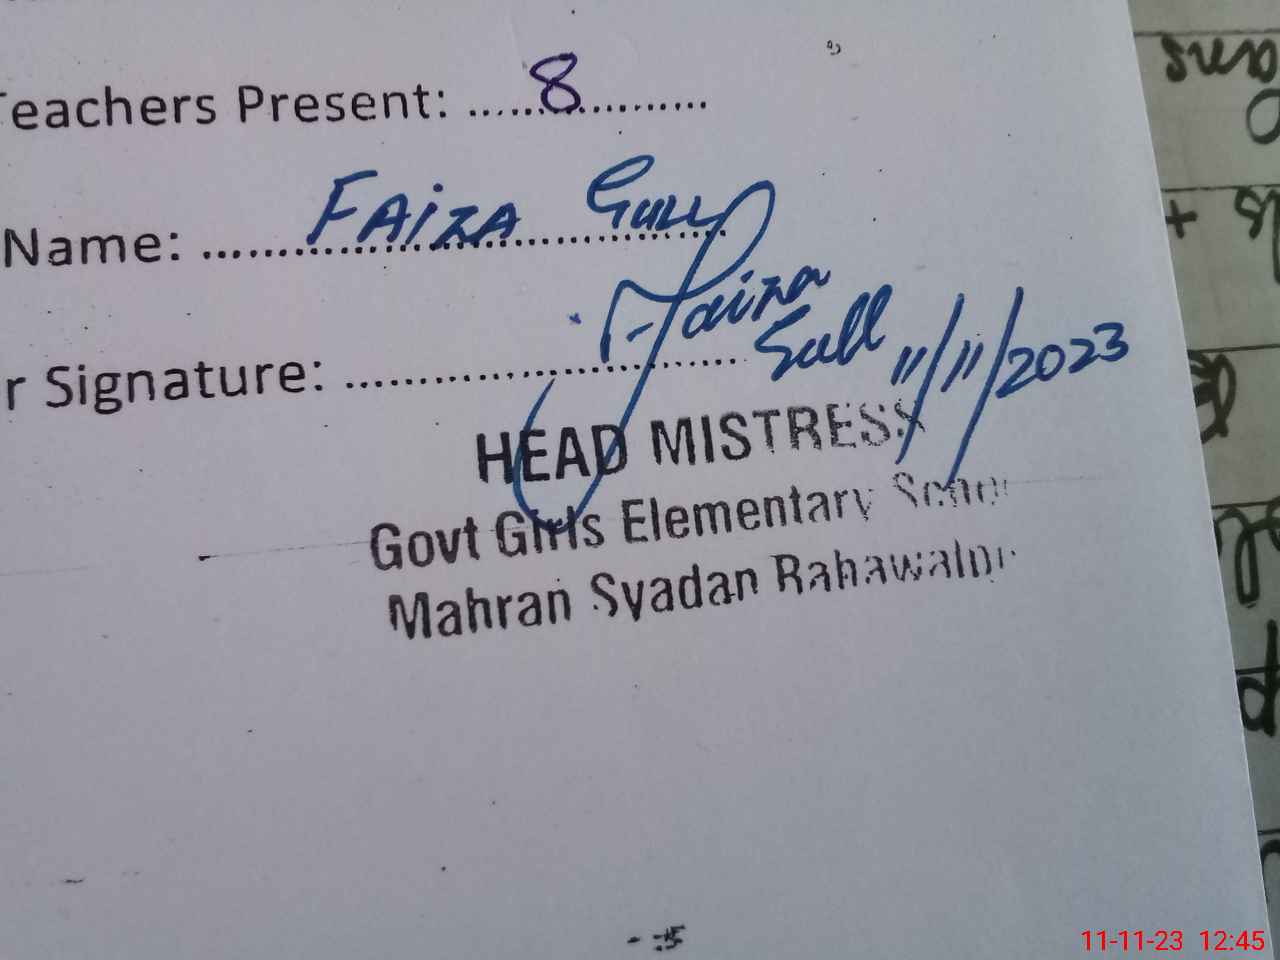 Teachers Present: ......8............
Name: ........... FAiZA Gull
r Signature: ........................ Faiza
Gull 11/11/2023
HEAD MISTRESS
Govt Girls Elementary School
Mahran Syadan Rahawalpur
11-11-23 12:45